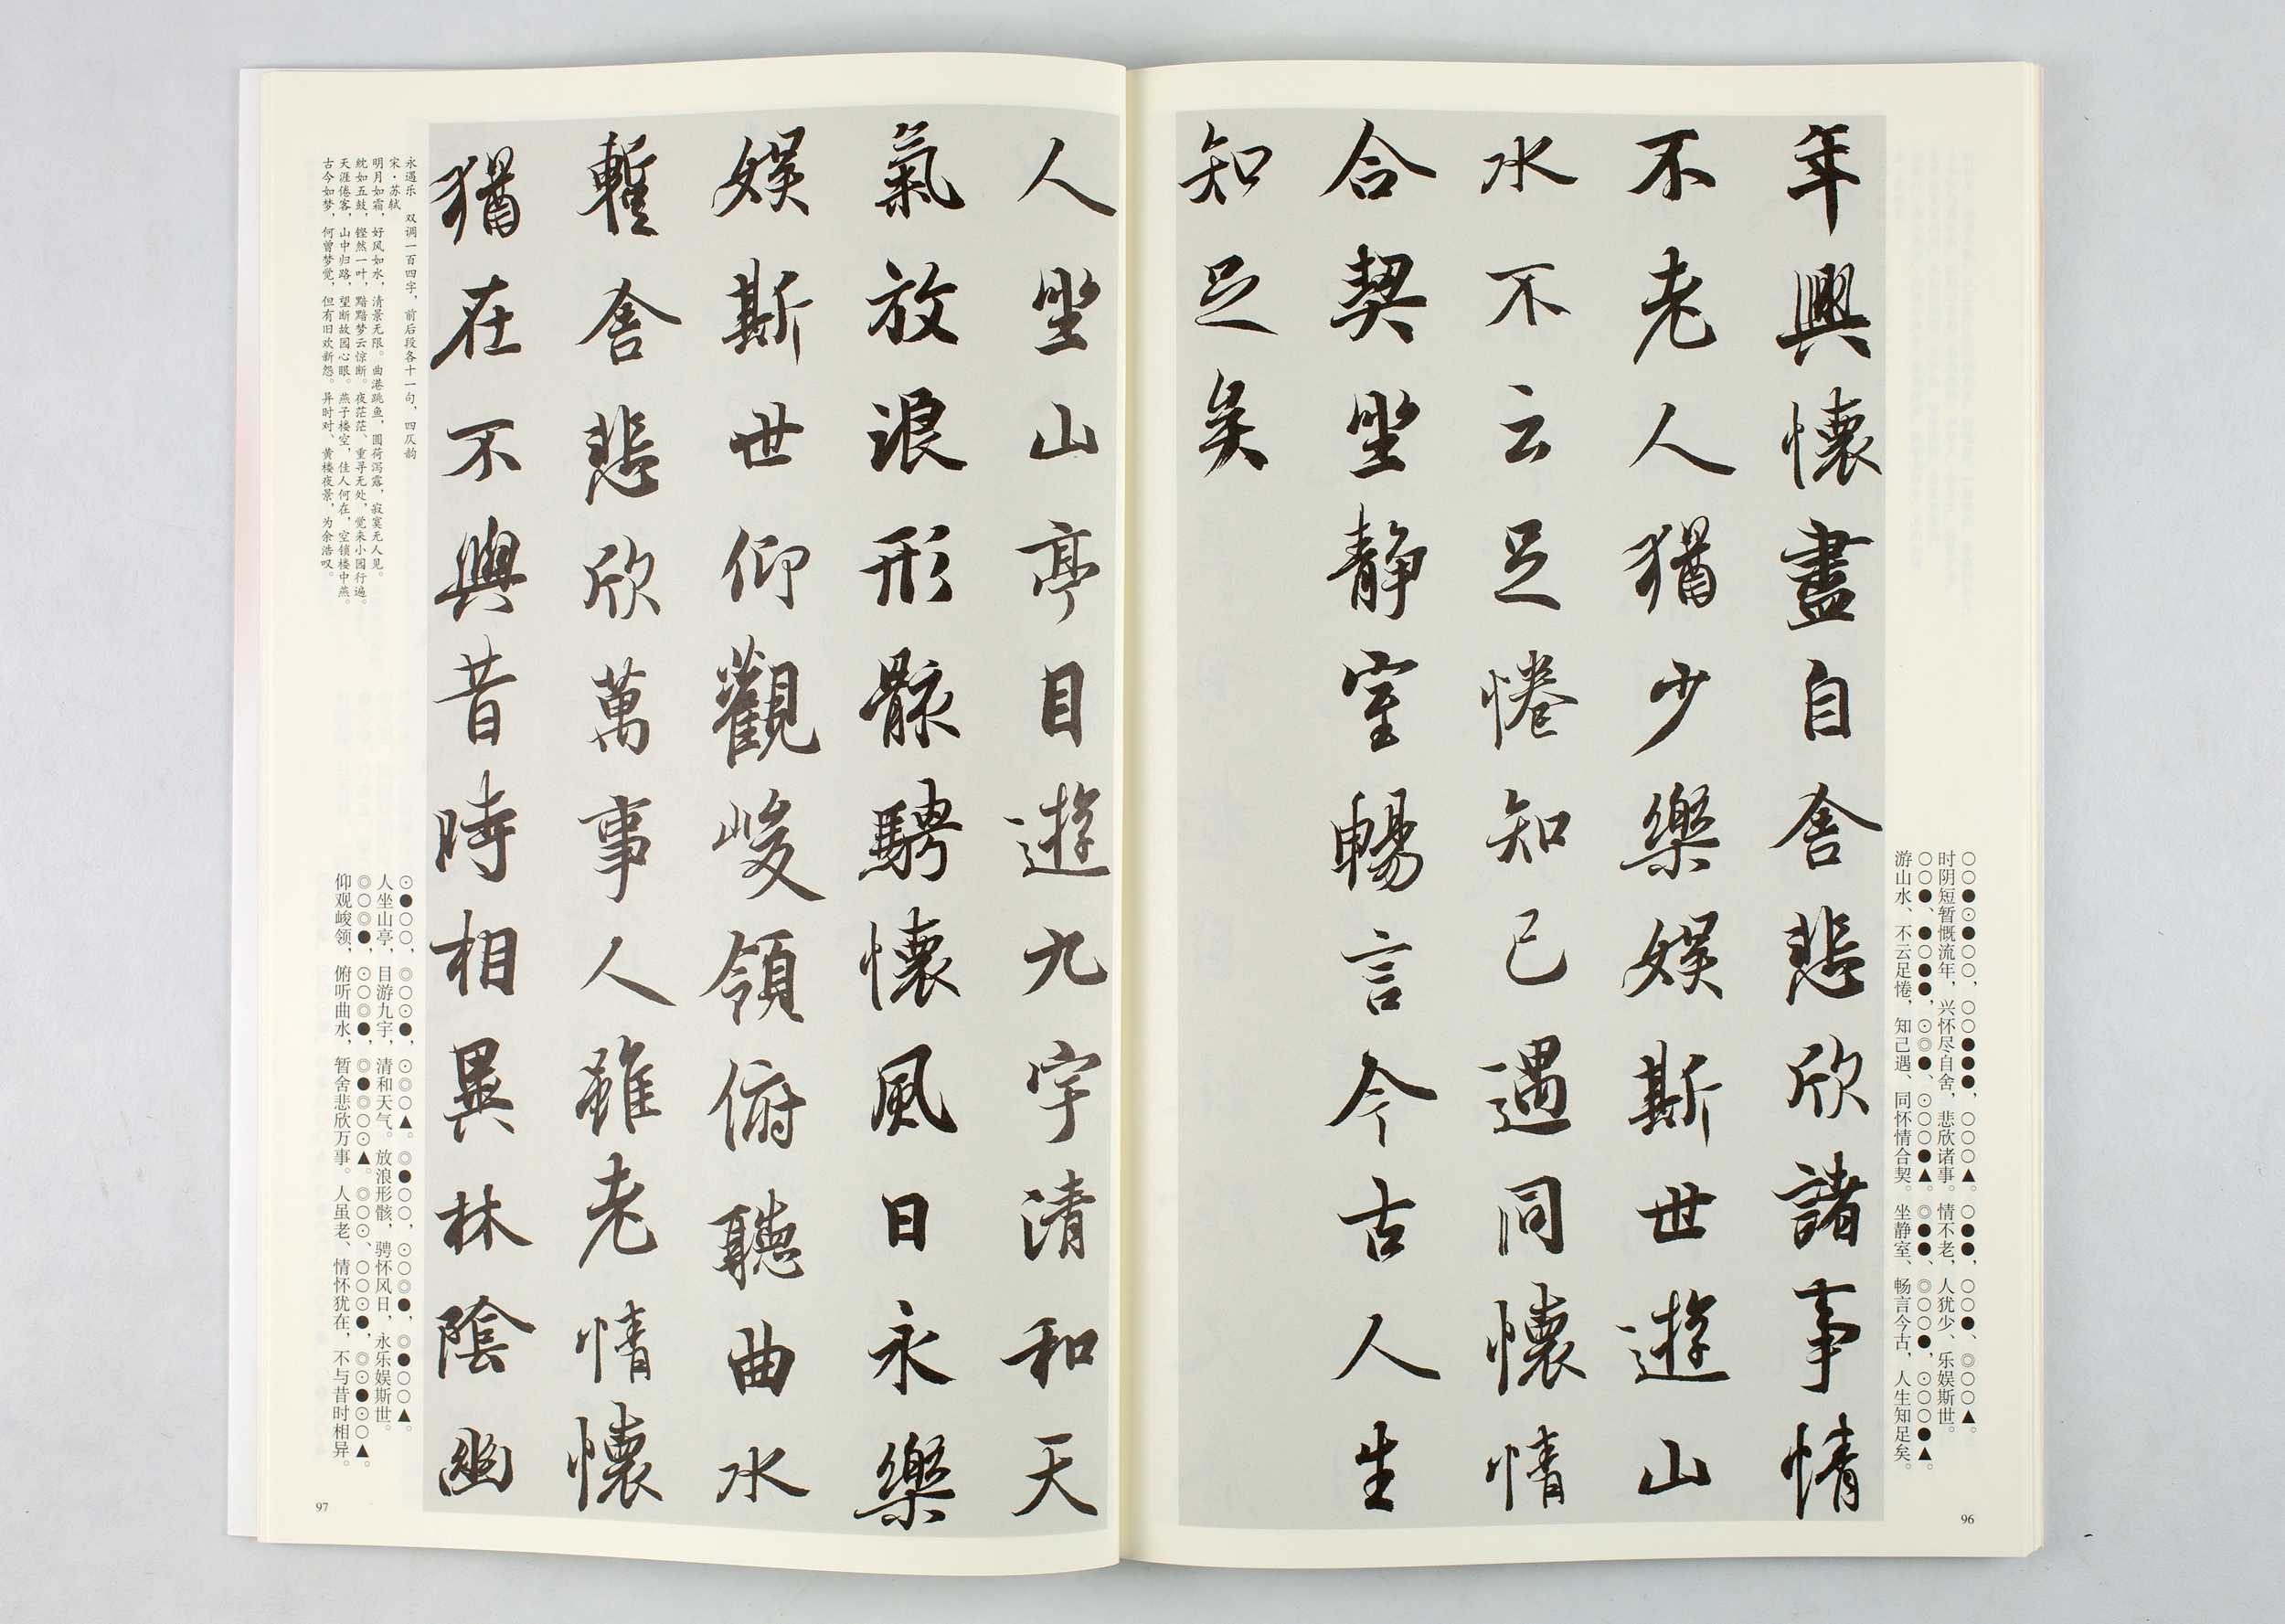 ○○●⊙●○○，○○●●●，○○○▲。○●●，○○●、◎○○▲。
时阴短暂慨流年，兴怀尽自舍，悲欣诸事。情不老，人犹少、乐娱斯世。
游山水、不云足惓，知己遇、同怀情合契。坐静室、畅言今古，人生知足矣。
年興懷盡自舍悲欣諸事情
不老人猶少樂娱斯世遊山
水不云足惓知己遇同懷情
合契坐静室暢言今古人生
知足矣
96
人坐山亭目遊九宇清和天
氣放浪形骸騁懷風日永樂
娱斯世仰觀峻領俯聽曲水
暫舍悲欣萬事人雖老情懷
猶在不與昔時相異林陰幽
永遇乐 双调一百四字，前后段各十一句，四仄韵
宋·苏轼
明月如霜，好风如水，清景无限。曲港跳鱼，圆荷泻露，寂寞无人见。
紞如五鼓，铿然一叶，黯黯梦云惊断。夜茫茫、重寻无处，觉来小园行遍。
天涯倦客，山中归路，望断故园心眼。燕子楼空，佳人何在，空锁楼中燕。
古今如梦，何曾梦觉，但有旧欢新怨。异时对、黄楼夜景，为余浩叹。
人坐山亭，目游九宇，清和天气。放浪形骸，骋怀风日，永乐娱斯世。
仰观峻领，俯听曲水，暂舍悲欣万事。人虽老、情怀犹在，不与昔时相异。
97